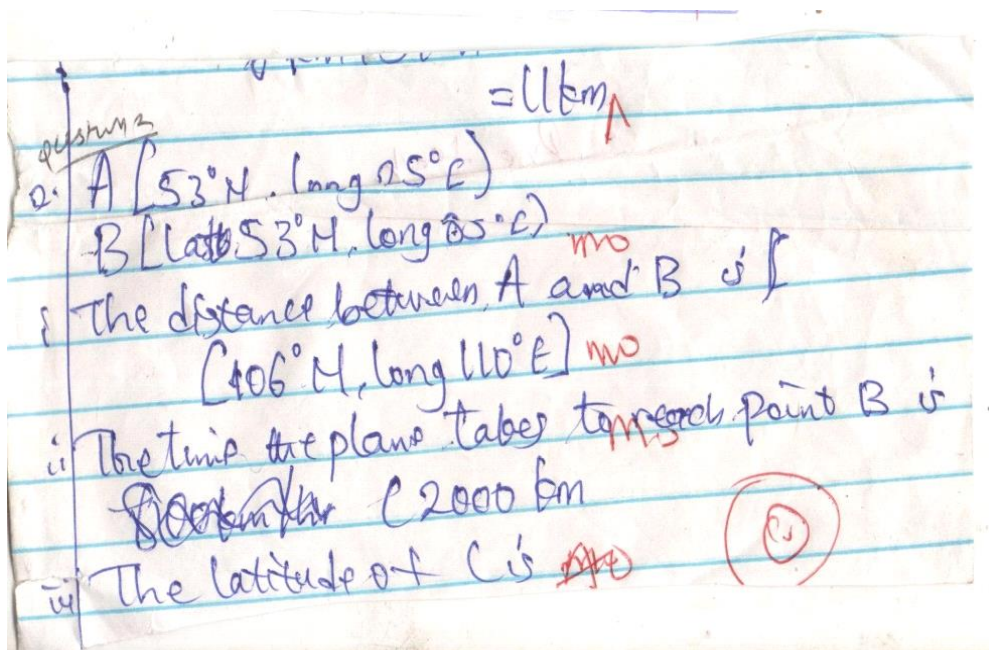 =11km
Question 2
2. A [53°N. long 25°E)
B [lat 53°N, long 85°E) mo
i The distance between A and B is [
[106°N, long 110°E] mo
ii The time the plane takes to reach point B is
(2000 km
iii The latitude of C is mo